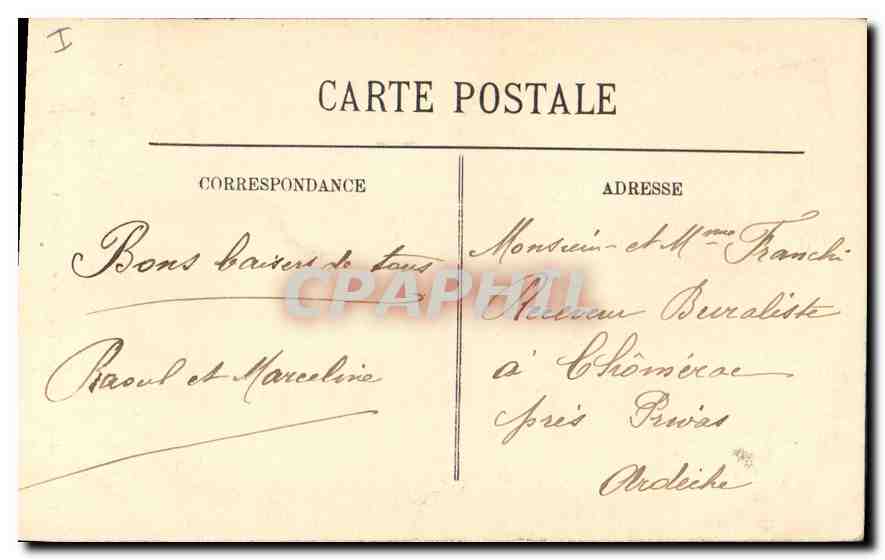 I
CARTE POSTALE
CORRESPONDANCE
Bons baisers de tous
Raoul et Marceline
ADRESSE
Monsieur et Mme Franchi
Receveur Buraliste
à Chômérac
près Privas
Ardèche
CPAPHIL